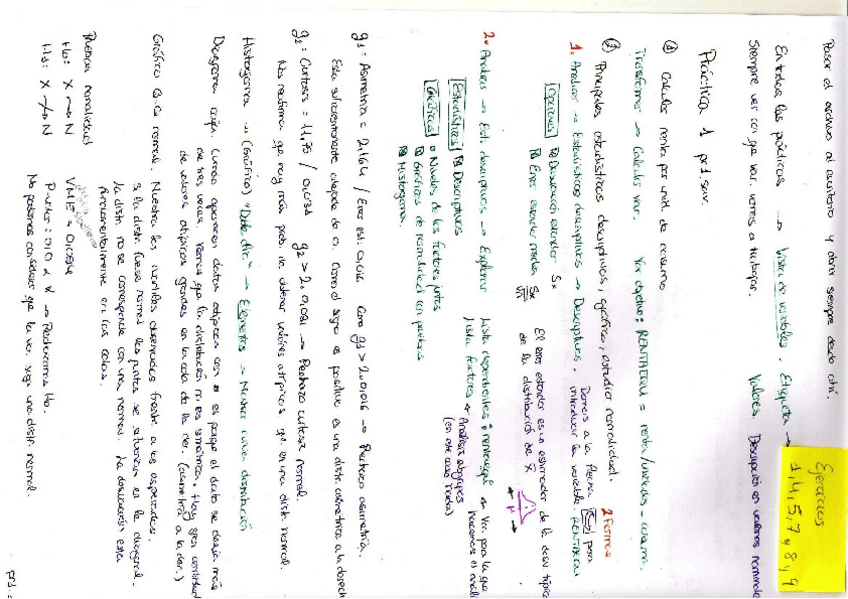 Pasar el archivo al escritorio y abrir siempre desde ahí.
En todas las prácticas → Vista de variables. Etiqueta →
Siempre ver con que var. vamos a trabajar. Valores Descripción en valores nominale
Ejercicios
1,4,5,7,8 y 9
Práctica 1 pr1.sav.
① Calcular renta por unid. de consumo
Transformar → Calcular var. Var objetivo: = renta/unidades-consumo.
② Principales estadísticos descriptivos, gráfico, estudiar normalidad. 2 Formas
1. Analizar → Estadísticos descriptivos → Descriptivos. introducir la variable.
Damos a la flecha para
Opciones ☒ Desviación estándar Sx
☒ Error estándar media Sx/√n
El error estándar es un estimador de la desv típica
de la distribución de x̄
2. Analizar → Est. descriptivos → Explorar Lista dependientes: Ver para la que
Lista factores → Análisis subgrupos
(en este caso nada)
Estadísticos ☒ Descriptivos
Gráficos • Niveles de los factores juntos
☒ Gráficos de normalidad con pruebas
☒ Histograma.
g1 = Asimetría = 2,164 / Error est. Como g1 > → Rechazo asimetría.
Está suficientemente alejada de 0. Como el signo es positivo es una distr. asimétrica a la derech
g2 = Curtosis = 11,75 / g2 > → Rechazo curtosis normal.
Nos reafirma que hay más prob. de obtener valores atípicos que en una distr. normal.
Histograma → (Gráfico) "Doble clic" → Elementos → Mostrar curva distribución
Diagrama cajón. Cuando aparecen datos atípicos con * es porque el dato se desvía más
de tres veces. Vemos que la distribución ni es simétrica. Hay gran cantidad
de valores atípicos grandes en la cola de la der. (asimetría a la der.)
Gráfico Q-Q normal. Nuestra los cuantiles observados frente a los esperados.
Si la distr. fuese normal los puntos se situarían en la diagonal.
La distr. no se corresponde con una normal. La desviación está
fundamentalmente en las colas.
Prueba normalidad
H0: X → N
H1: X ↛ N
P-valor: 0,0 < α → Rechazamos H0.
No podemos considerar que la var. siga una distr. normal.